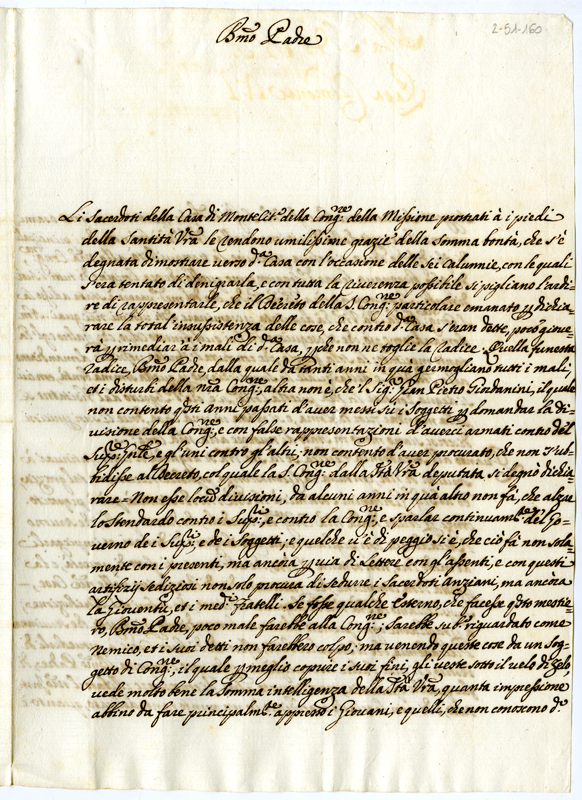 2-51-160
Bmo Padre
Li Sacerdoti della Casa di Montecit.o della Cong.ne della Missione prostrati à i piedi
della Santità Vra le rendono umilissime grazie della somma bontà, che s'è
degnata di mostrare verso d.a Casa con l'occasione delle sei calunnie, con le quali
s'era tentato di denigrarla, e con tutta la riverenza possibile si pigliano l'ardi-
re di rappresentarle, che il Decreto della S. Cong.ne particolare emanato p dichia-
rare la total insussistenza delle cose, che contro d.a Casa s'eran dette, poco giove-
rà p rimediar à i mali di d.a Casa, p che non ne toglie la radice. Quella funesta
radice, Bmo Padre, dalla quale da tanti anni in quà germogliano tutti i mali,
et i disturbi della nra Cong.ne, altra non è, che 'l sig.r Gian Pietro Giordanini, il quale
non contento q.sti anni passati d'aver messi sù i Soggetti p domandar la di-
visione della Cong.ne, e con false rappresentazioni d'averci armati contro del
Sup.re Gnle, e gl'uni contro gl'altri; non contento d'aver procurato, che non s'ub-
bidisse al Decreto, col quale la S. Cong.ne dalla Stà Vra deputata si degnò dichia-
rare = Non esse locum divisioni, da alcuni anni in quà altro non fà, che alzare
lo stendardo contro i Sup.ri, e contro la Cong.ne e sparlar continuam.te del Go-
verno de i Sup.ri e de i Soggetti; e quel che v'è di peggio si è, che ciò fà non sola-
mente con i presenti, mà ancora p via di Lettere con gl'assenti, e con questi
artifizij sediziosi non solo procura di sedurre i Sacerdoti anziani, ma ancora
la Gioventù, et i med.i fratelli. Se fosse qualche Esterno, che facesse q.sto mestie-
ro, Bmo Padre, poco male farebbe alla Cong.ne; sarebbe sub.o riguardato come
nemico, et i suoi detti non farebbero colpo; ma venendo queste cose da un Sog-
getto di Cong.ne, il quale p meglio coprire i suoi fini, gli veste sotto il velo di zelo,
vede molto bene la somma intelligenza della Stà Vra, quanta impressione
abbino da fare principalm.te appresso i Giovani, e quelli, che non conoscono d.o